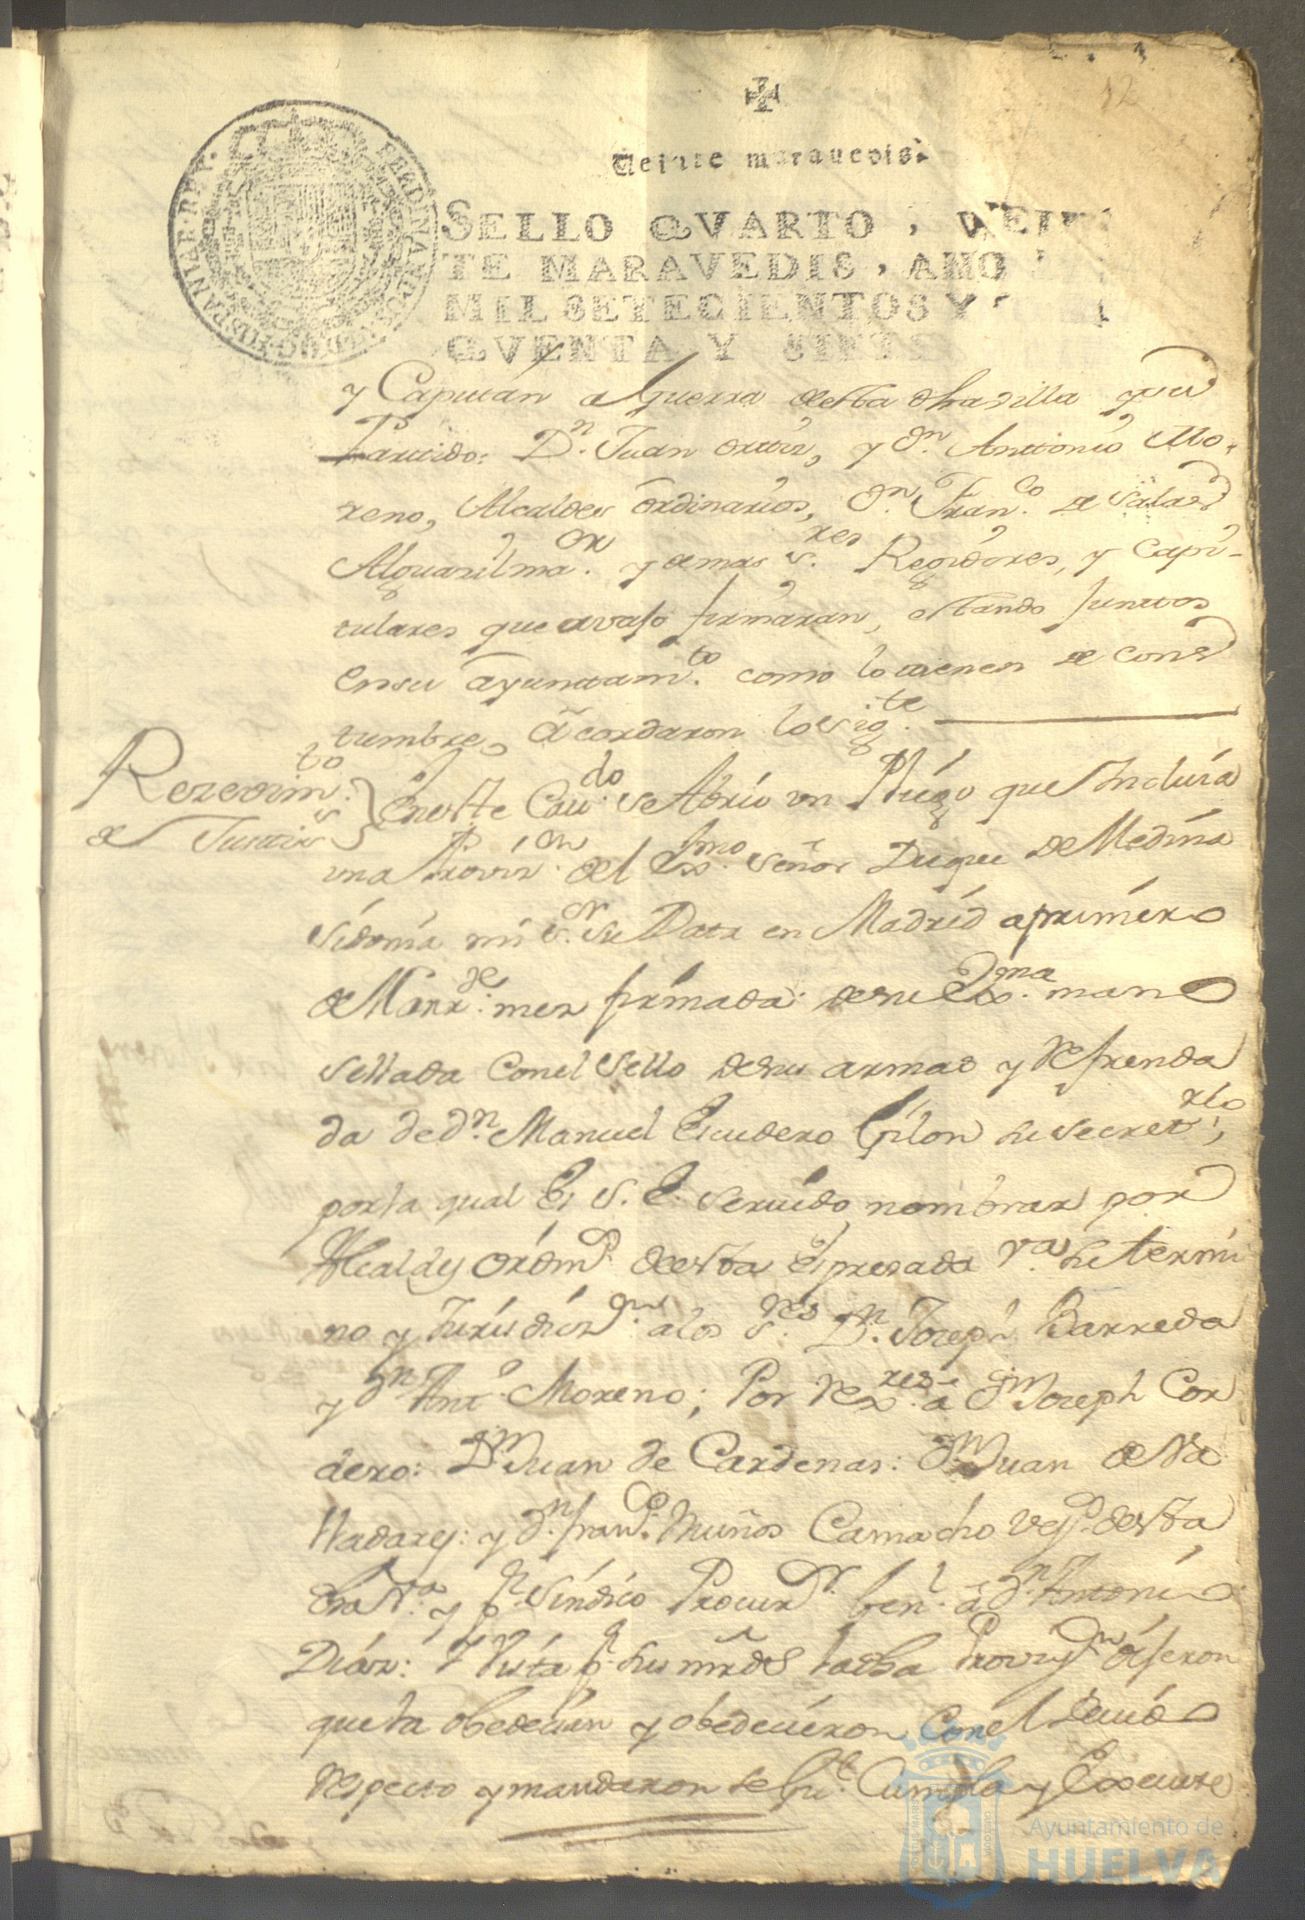 12
Veinte maravedis.
SELLO QVARTO, VEIN
TE MARAVEDIS, AÑO
MIL SETECIENTOS Y
QVENTA Y SIETE
HISPANIAR·REX·
y Capitan a guerra desta dha villa y su
Partido: Dn. Juan ortiz, y dn. Anttonio Mo-
reno, Alcaldes ordinarios, dn. Franco. de salas
Alguasilmaor. y demas sres. Regidores, y Capi-
tulares que avajo firmaran, estando junttos
en su ayunttamto. como lo tienen de cos
tumbre, acordaron lo sigte.
Rezevimto.
de Justizs
En este Cavdo. se Abrio un Pliego que Incluia
una Provison. del Exmo. señor Duque de Medina
sidonia mi sor. su Data en Madrid a primero
de mes firmada: de su Exma. mano
sellada con el sello de sus armas y Refrenda
da de dn. Manuel Escudero Gilon su secretrio,
por la qual Es S. E. servido nombrar por
Alcaldes ordins. desta Espresada va. su termi
no y Jurisdizn. a los sres. Dn. Joseph Barreda
y dn. Anto. Moreno; Por Rexres. a dn Joseph Cor
dero: Dn Juan de Cardenas: dn Juan de Va
lladares: y dn. franco. Muños Camacho vesos. desta
dha va. y pr. sindico Procurr. Genl. a dn. Antonio
Diaz: Y Vista pr. sus mrdes la dha Provizn. dijeron
que la obedecian y obedecieron con el devido
respecto y mandaron se Gue. Cumpla y Execute
Ayuntamiento de
HUELVA